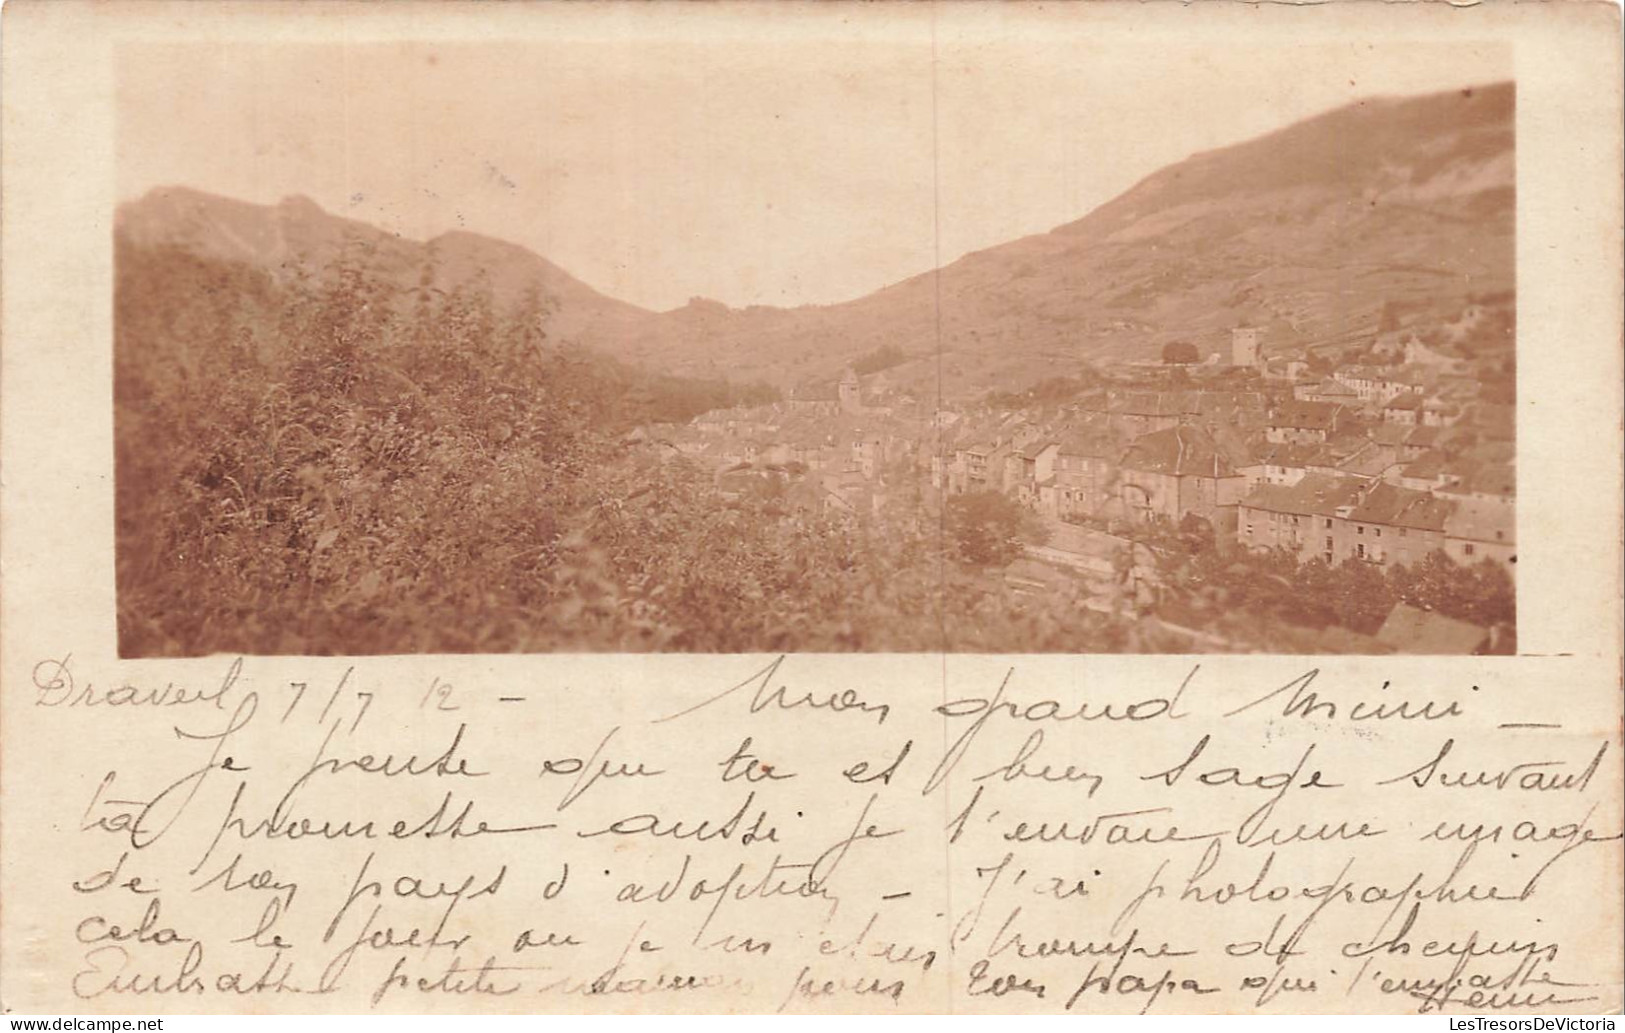 Draveil 7/7 12 - Mon grand Mimi -
Je pense que tu es bien sage suivant
ta promesse aussi je t'envoie une image
de ton pays d'adoption - J'ai photographié
cela le jour ou je m'étais trompé de chemin
Embrasse petite maman pour ton papa qui t'embrasse
Henri
LesTresorsDeVictoria